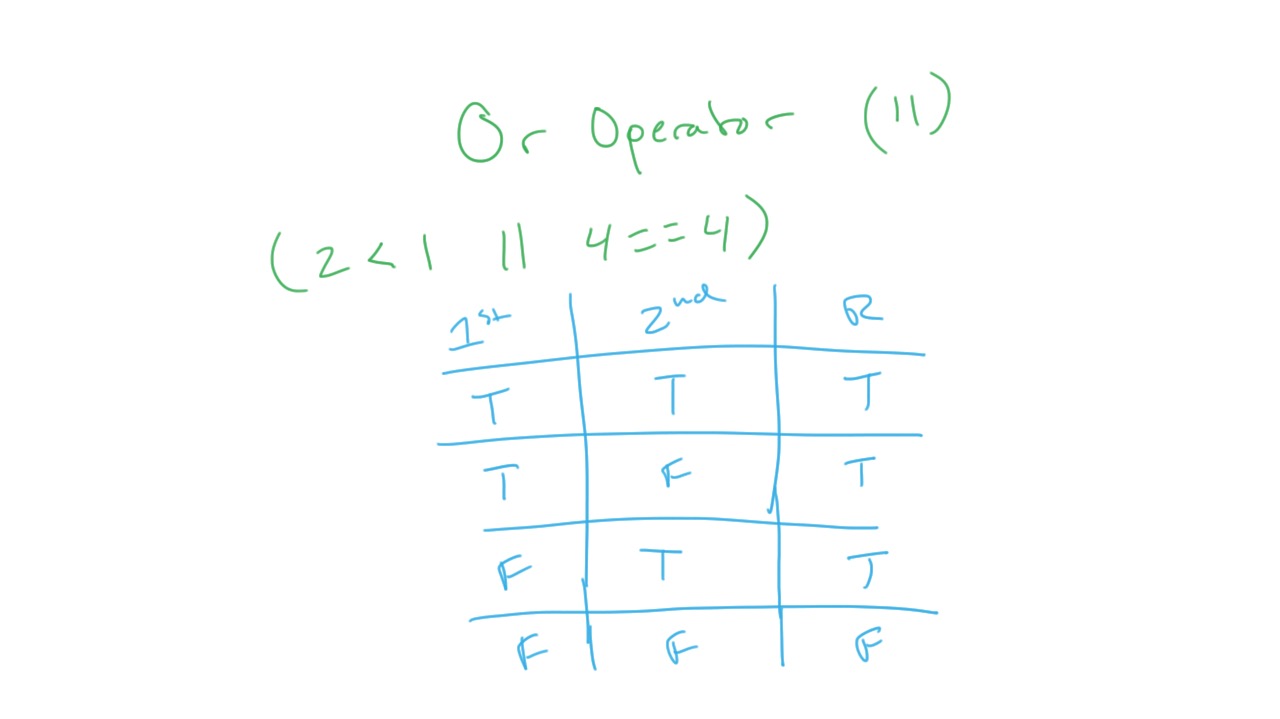 Or Operator (||)
(2 < 1 || 4 == 4)
1st 2nd R
T T T
T F T
F T T
F F F